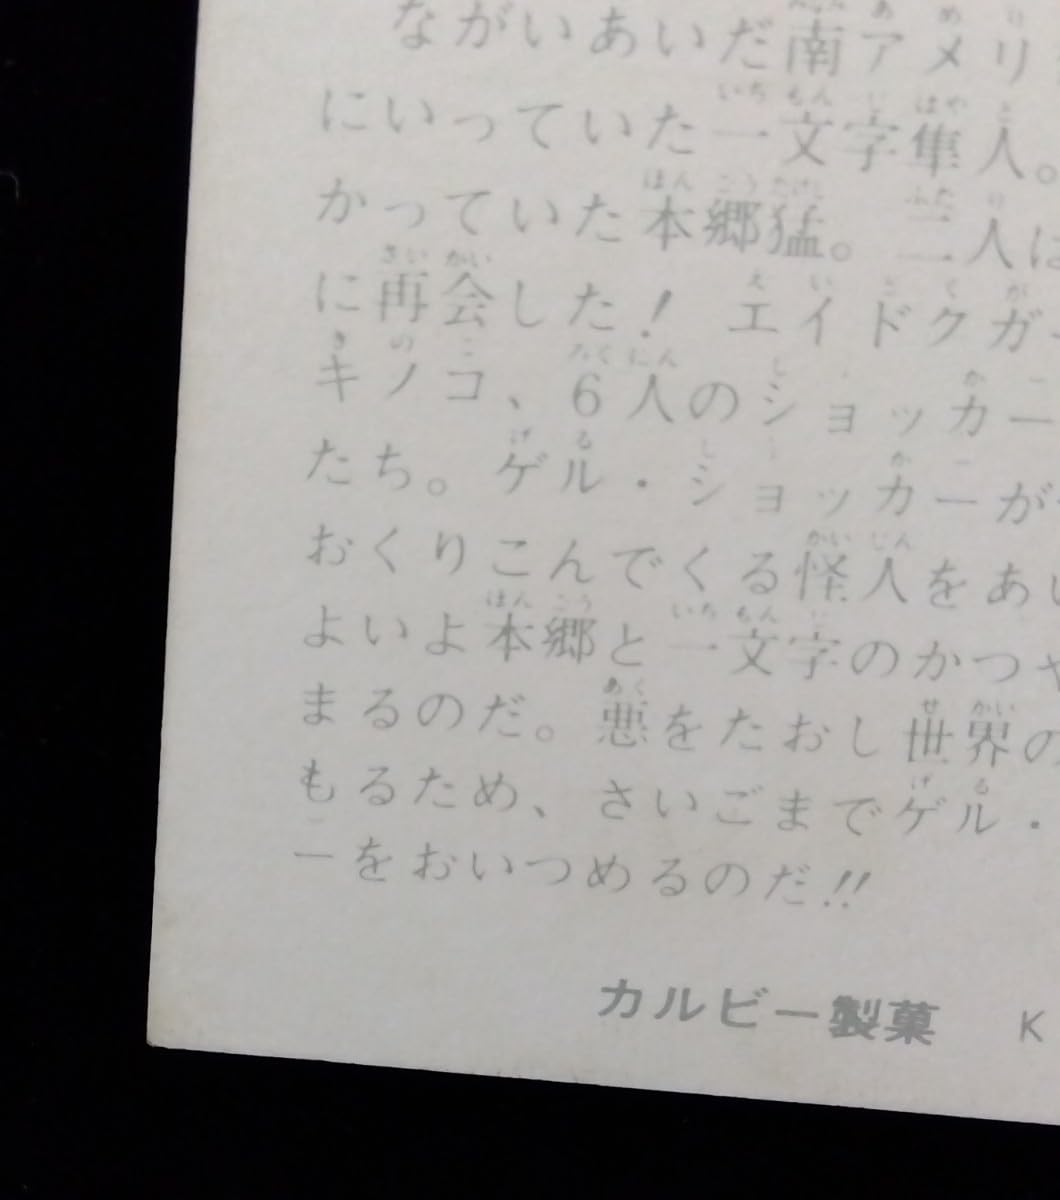 ながいあいだ南アメリ
にいっていた一文字隼人。
かっていた本郷猛。二人は
に再会した! エイドクガー
キノコ、6人のショッカー
たち。ゲル・ショッカーが
おくりこんでくる怪人をあい
よいよ本郷と一文字のかつや
まるのだ。悪をたおし世界の
もるため、さいごまでゲル・
ーをおいつめるのだ!!
カルビー製菓 K